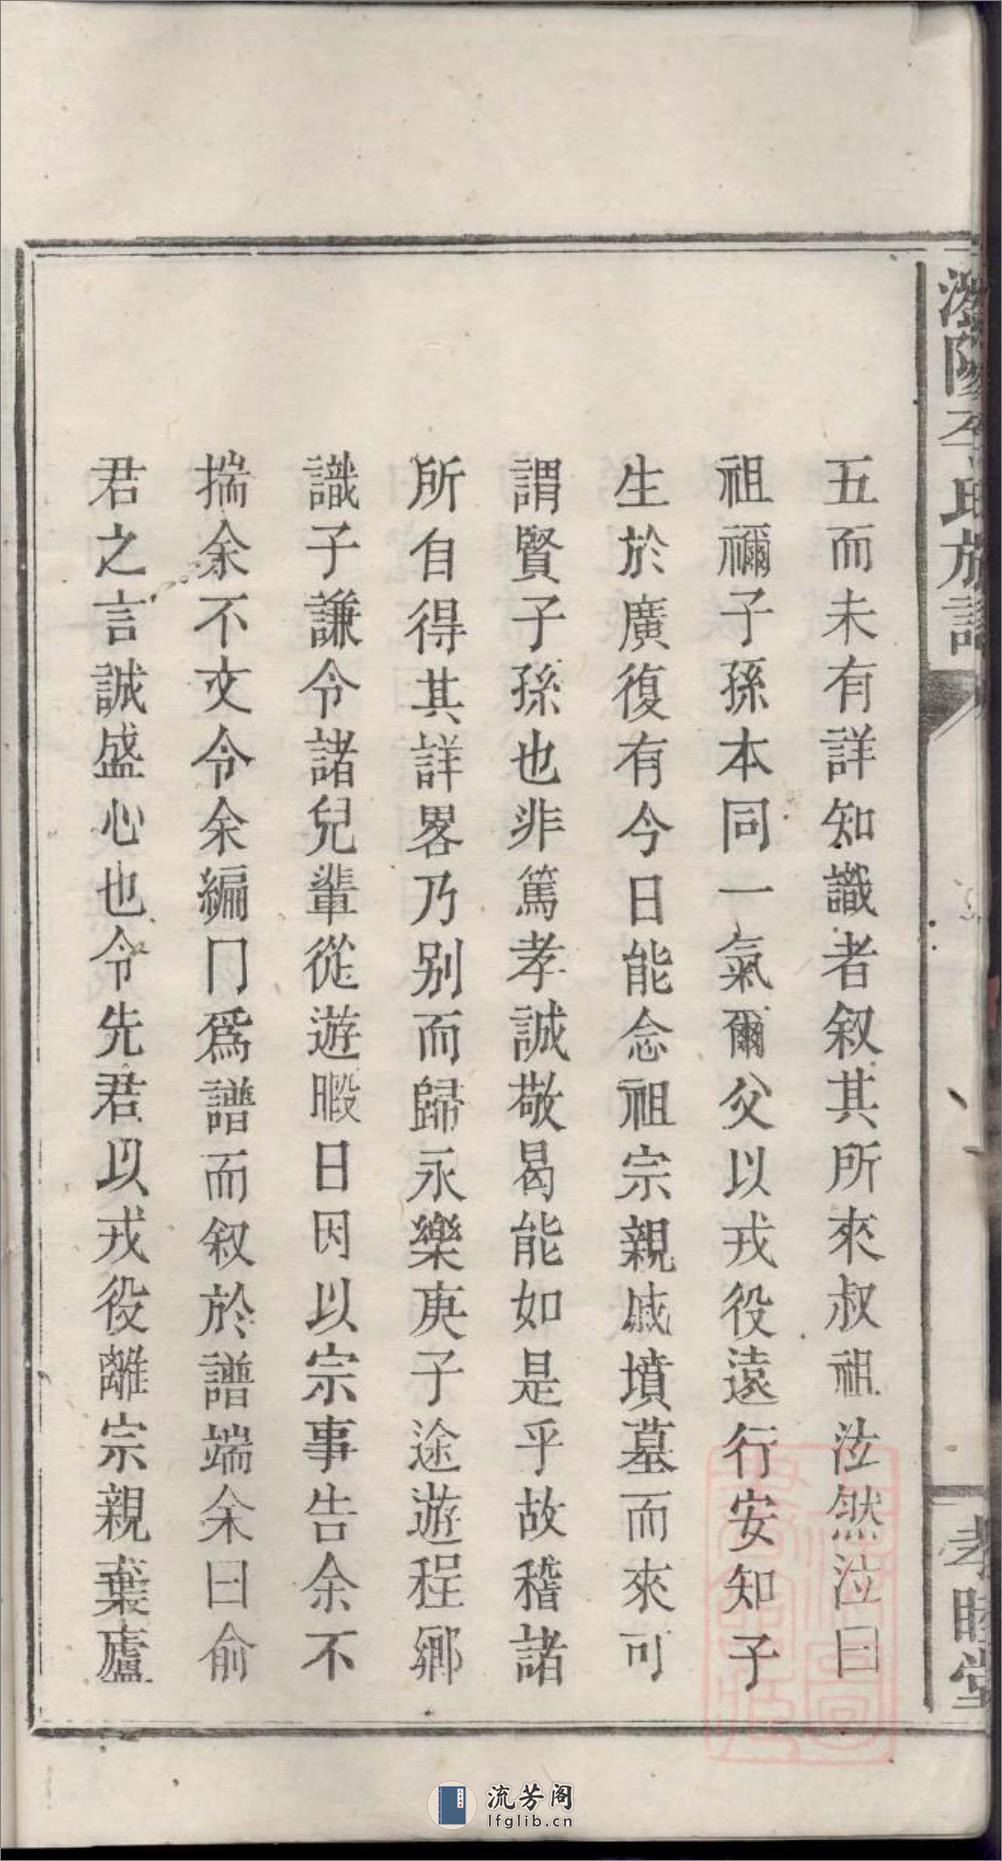 五而未有詳知識者叙其所來叔祖泣然泣曰
祖禰子孫本同一氣爾父以戎役遠行安知子
生於廣復有今日能念祖宗親戚墳墓而來可
謂賢子孫也非篤孝誠敬曷能如是乎故稽諸
所自得其詳畧乃别而歸永樂庚子途遊程鄉
識子謙令諸兒輩從遊暇日因以宗事告余不
揣余不文令余編門爲譜而叙於譜端余曰俞
君之言誠盛心也令先君以戎役離宗親棄廬
李氏族譜
孝睦堂
流芳阁
lfglib.cn